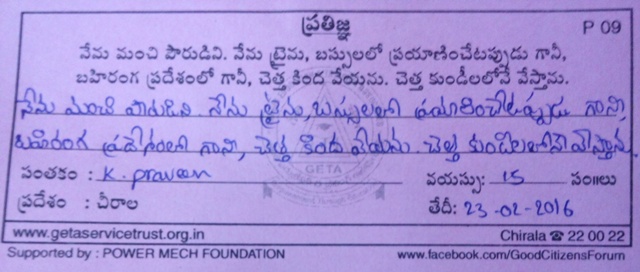 ప్రతిజ్ఞ P 09
నేను మంచి పౌరుడిని. నేను ట్రైను, బస్సులలో ప్రయాణించేటప్పుడు గానీ,
బహిరంగ ప్రదేశంలో గానీ, చెత్త కింద వేయను. చెత్త కుండీలలోనే వేస్తాను.
నేను మంచి పౌరుడిని. నేను ట్రైను, బస్సులలో ప్రయాణించేటప్పుడు గాని,
బహిరంగ ప్రదేశంలో గాని, చెత్త కింద వేయను. చెత్త కుండీలలోనే వేస్తాను.
సంతకం : K. praveen వయస్సు: 15 సం॥లు
ప్రదేశం : చీరాల తేదీ: 23-02-2016
GETA
www.getaservicetrust.org.in Chirala ☎ 22 00 22
Supported by : POWER MECH FOUNDATION www.facebook.com/GoodCitizensForum